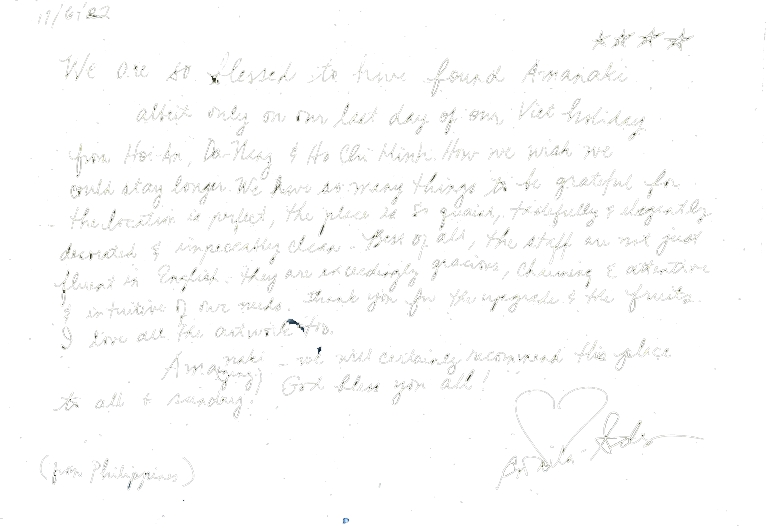 We are so blessed to have found Amanaki
albeit only on our last day of our Viet holiday
from Hoi An, Da-Nang & Ho Chi Minh. How we wish we
could stay longer. We have so many things to be grateful for
the location is perfect, the place is so quaint, tastefully & elegantly
decorated & impeccably clean - Best of all, the staff are not just
fluent in English. They are exceedingly gracious, charming & attentive
& intuitive of our needs. Thank you for the upgrade & the fruits.
I love all the artwork too.
Amanaki - we will certainly recommend this place
to all & sunday! God bless you all!
(from Philippines)